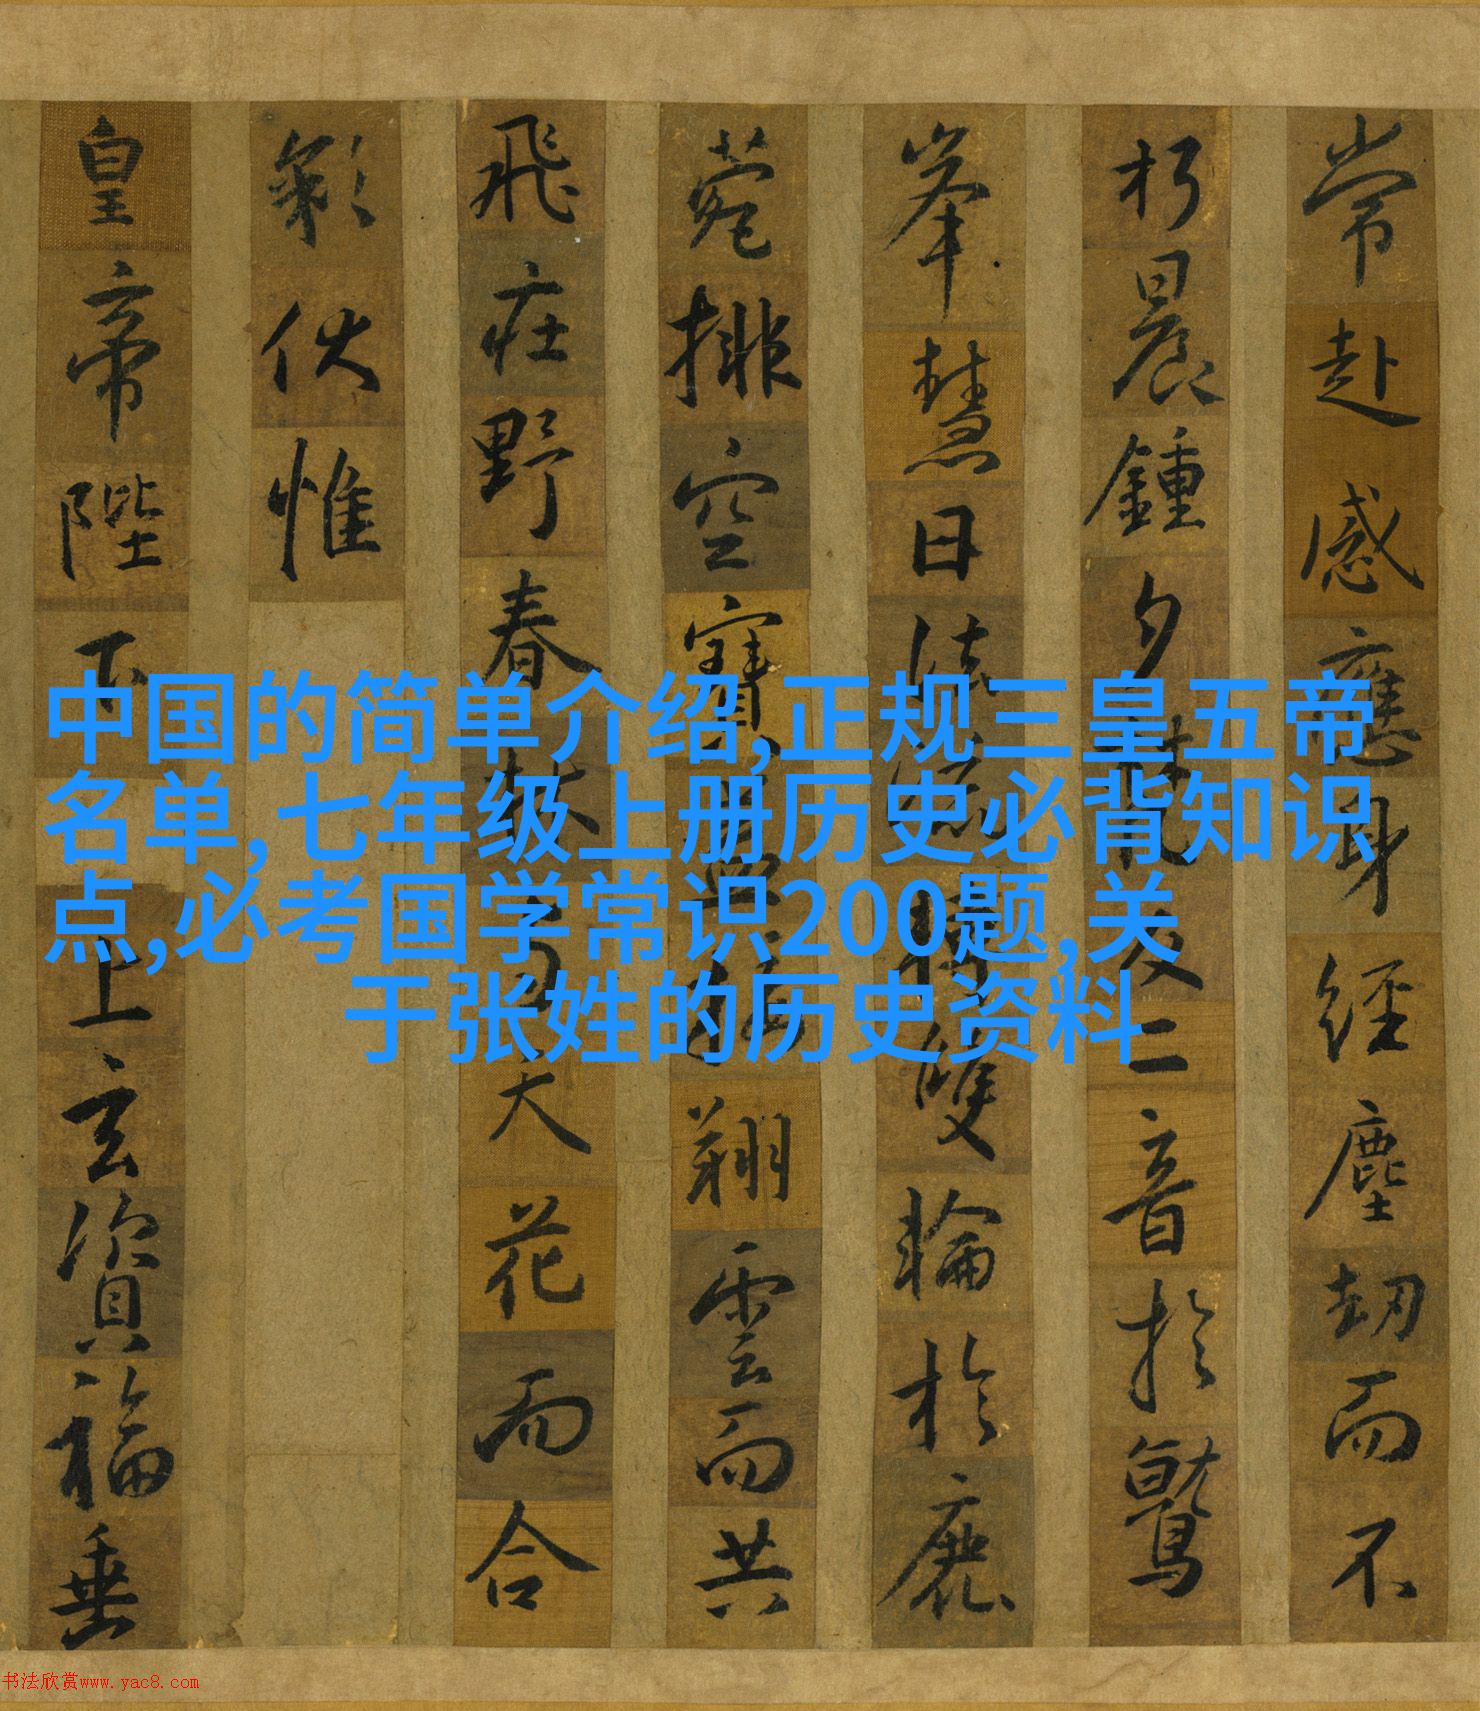 常赴感應身經塵劫而不
朽晨鍾夕梵交二音於鷲
峯慧日法流轉雙輪於鹿
菀排空寶蓋接翔雲而共
飛莊野春林与天花而合
彩伏惟
皇帝陛下上玄資福垂
中国的简单介绍,正规三皇五帝
名单,七年级上册历史必背知识
点,必考国学常识200题,关
于张姓的历史资料
书法欣赏www.yac8.com